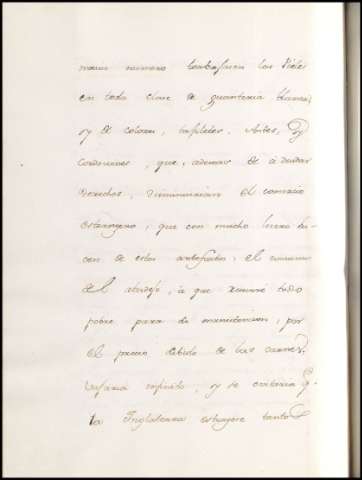 mero numero trabajasen las Pieles
en toda clase de guanteria blanca,
y de colores, tafiletes, Antes, y
Cordovanes, que, ademas de
derechos, disminuirian el comercio
estrangero, que con mucho lucro
cen de estos artefactos; el consumo
del , a que recurre todo
pobre para su manutencion, por
el precio debido de las carnes,
bajaria infinito, y se evitaria q.
la Inglaterra extrajere tanto